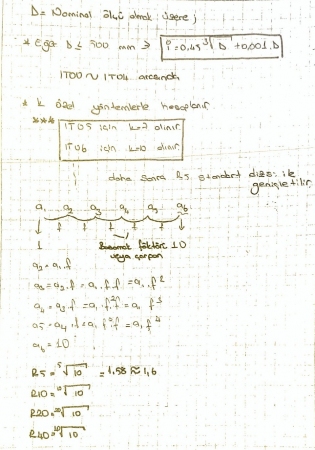 D = Nominal ölçü olmak üzere ;
* Eğer D ≤ 500 mm ⇒ i = 0,45 ∛D + 0,001.D
IT00 ~ IT04 arasında
* k özel yöntemlerle hesaplanır
*** IT05 için k=7 alınır.
IT06 için k=10 alınır.
daha sonra R5 standart dizisi ile genişletilir
a₁ a₂ a₃ a₄ a₅ a₆
f f f f f
1 Basamak faktörü 10
veya çarpan
a₂ = a₁.f
a₃ = a₂.f = a₁.f.f = a₁.f²
a₄ = a₃.f = a₁.f².f = a₁.f³
a₅ = a₄.f = a₁.f³.f = a₁.f⁴
a₆ = 10
R5 = ⁵√10 = 1.58 ≅ 1,6
R10 = ¹⁰√10
R20 = ²⁰√10
R40 = ⁴⁰√10